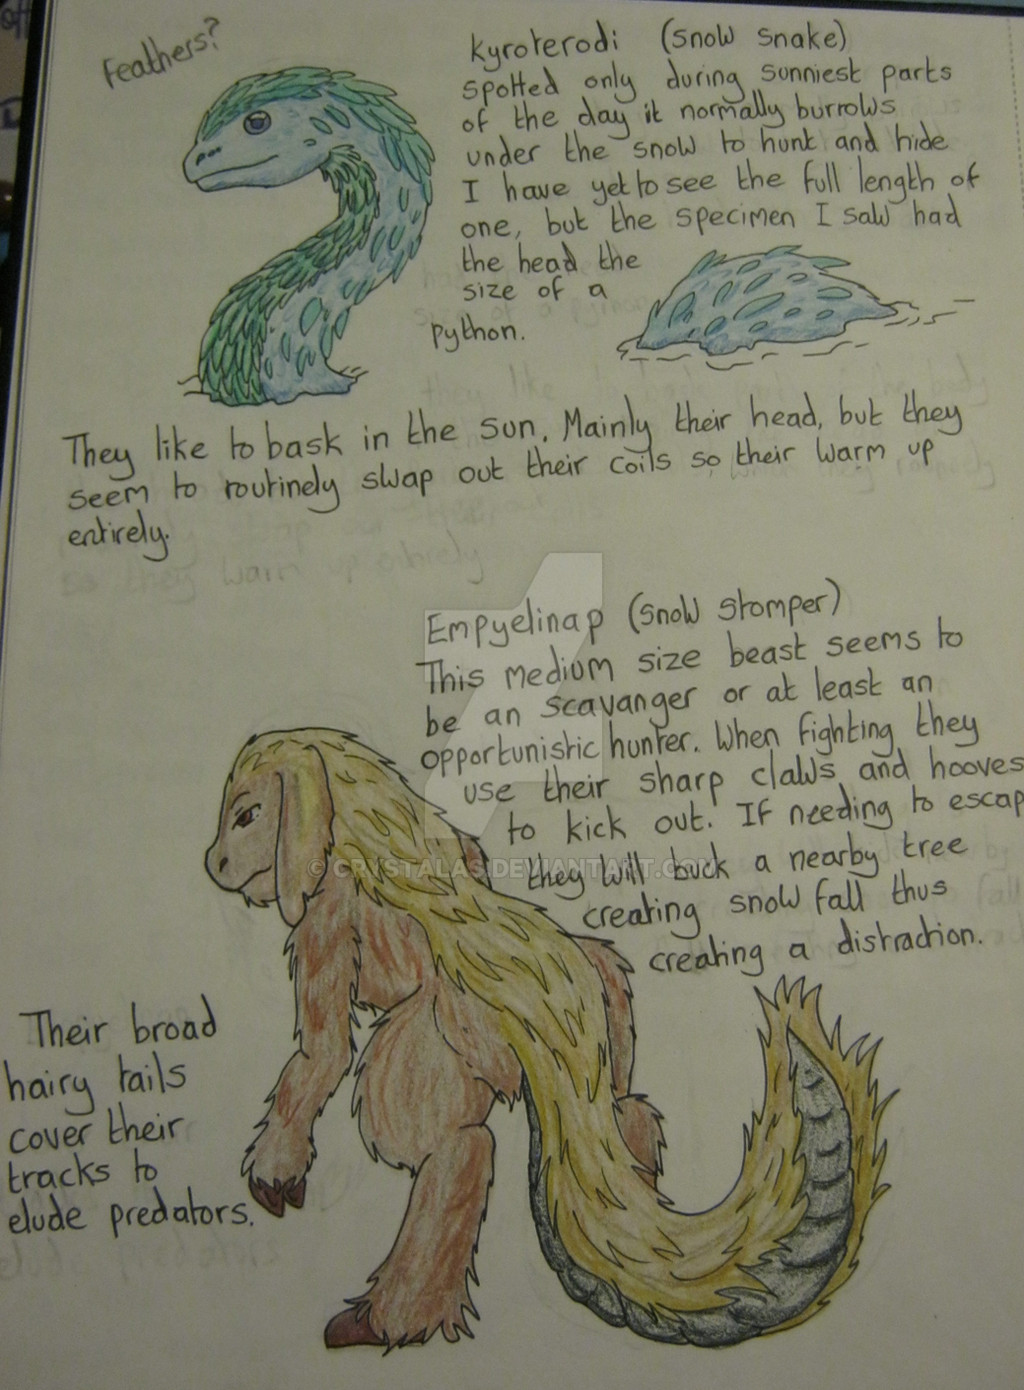 Feathers?
Kyroterodi (snow snake)
spotted only during sunniest parts
of the day it normally burrows
under the snow to hunt and hide
I have yet to see the full length of
one, but the specimen I saw had
the head the
size of a
python.
They like to bask in the sun. Mainly their head, but they
seem to routinely swap out their coils so their warm up
entirely.
Empyelinap (snow stomper)
This medium size beast seems to
be an scavanger or at least an
opportunistic hunter. When fighting they
use their sharp claws and hooves
to kick out. If needing to escap
they will buck a nearby tree
creating snow fall thus
creating a distraction.
Their broad
hairy tails
cover their
tracks to
elude predators.
© CRYSTALAS.DEVIANTART.COM